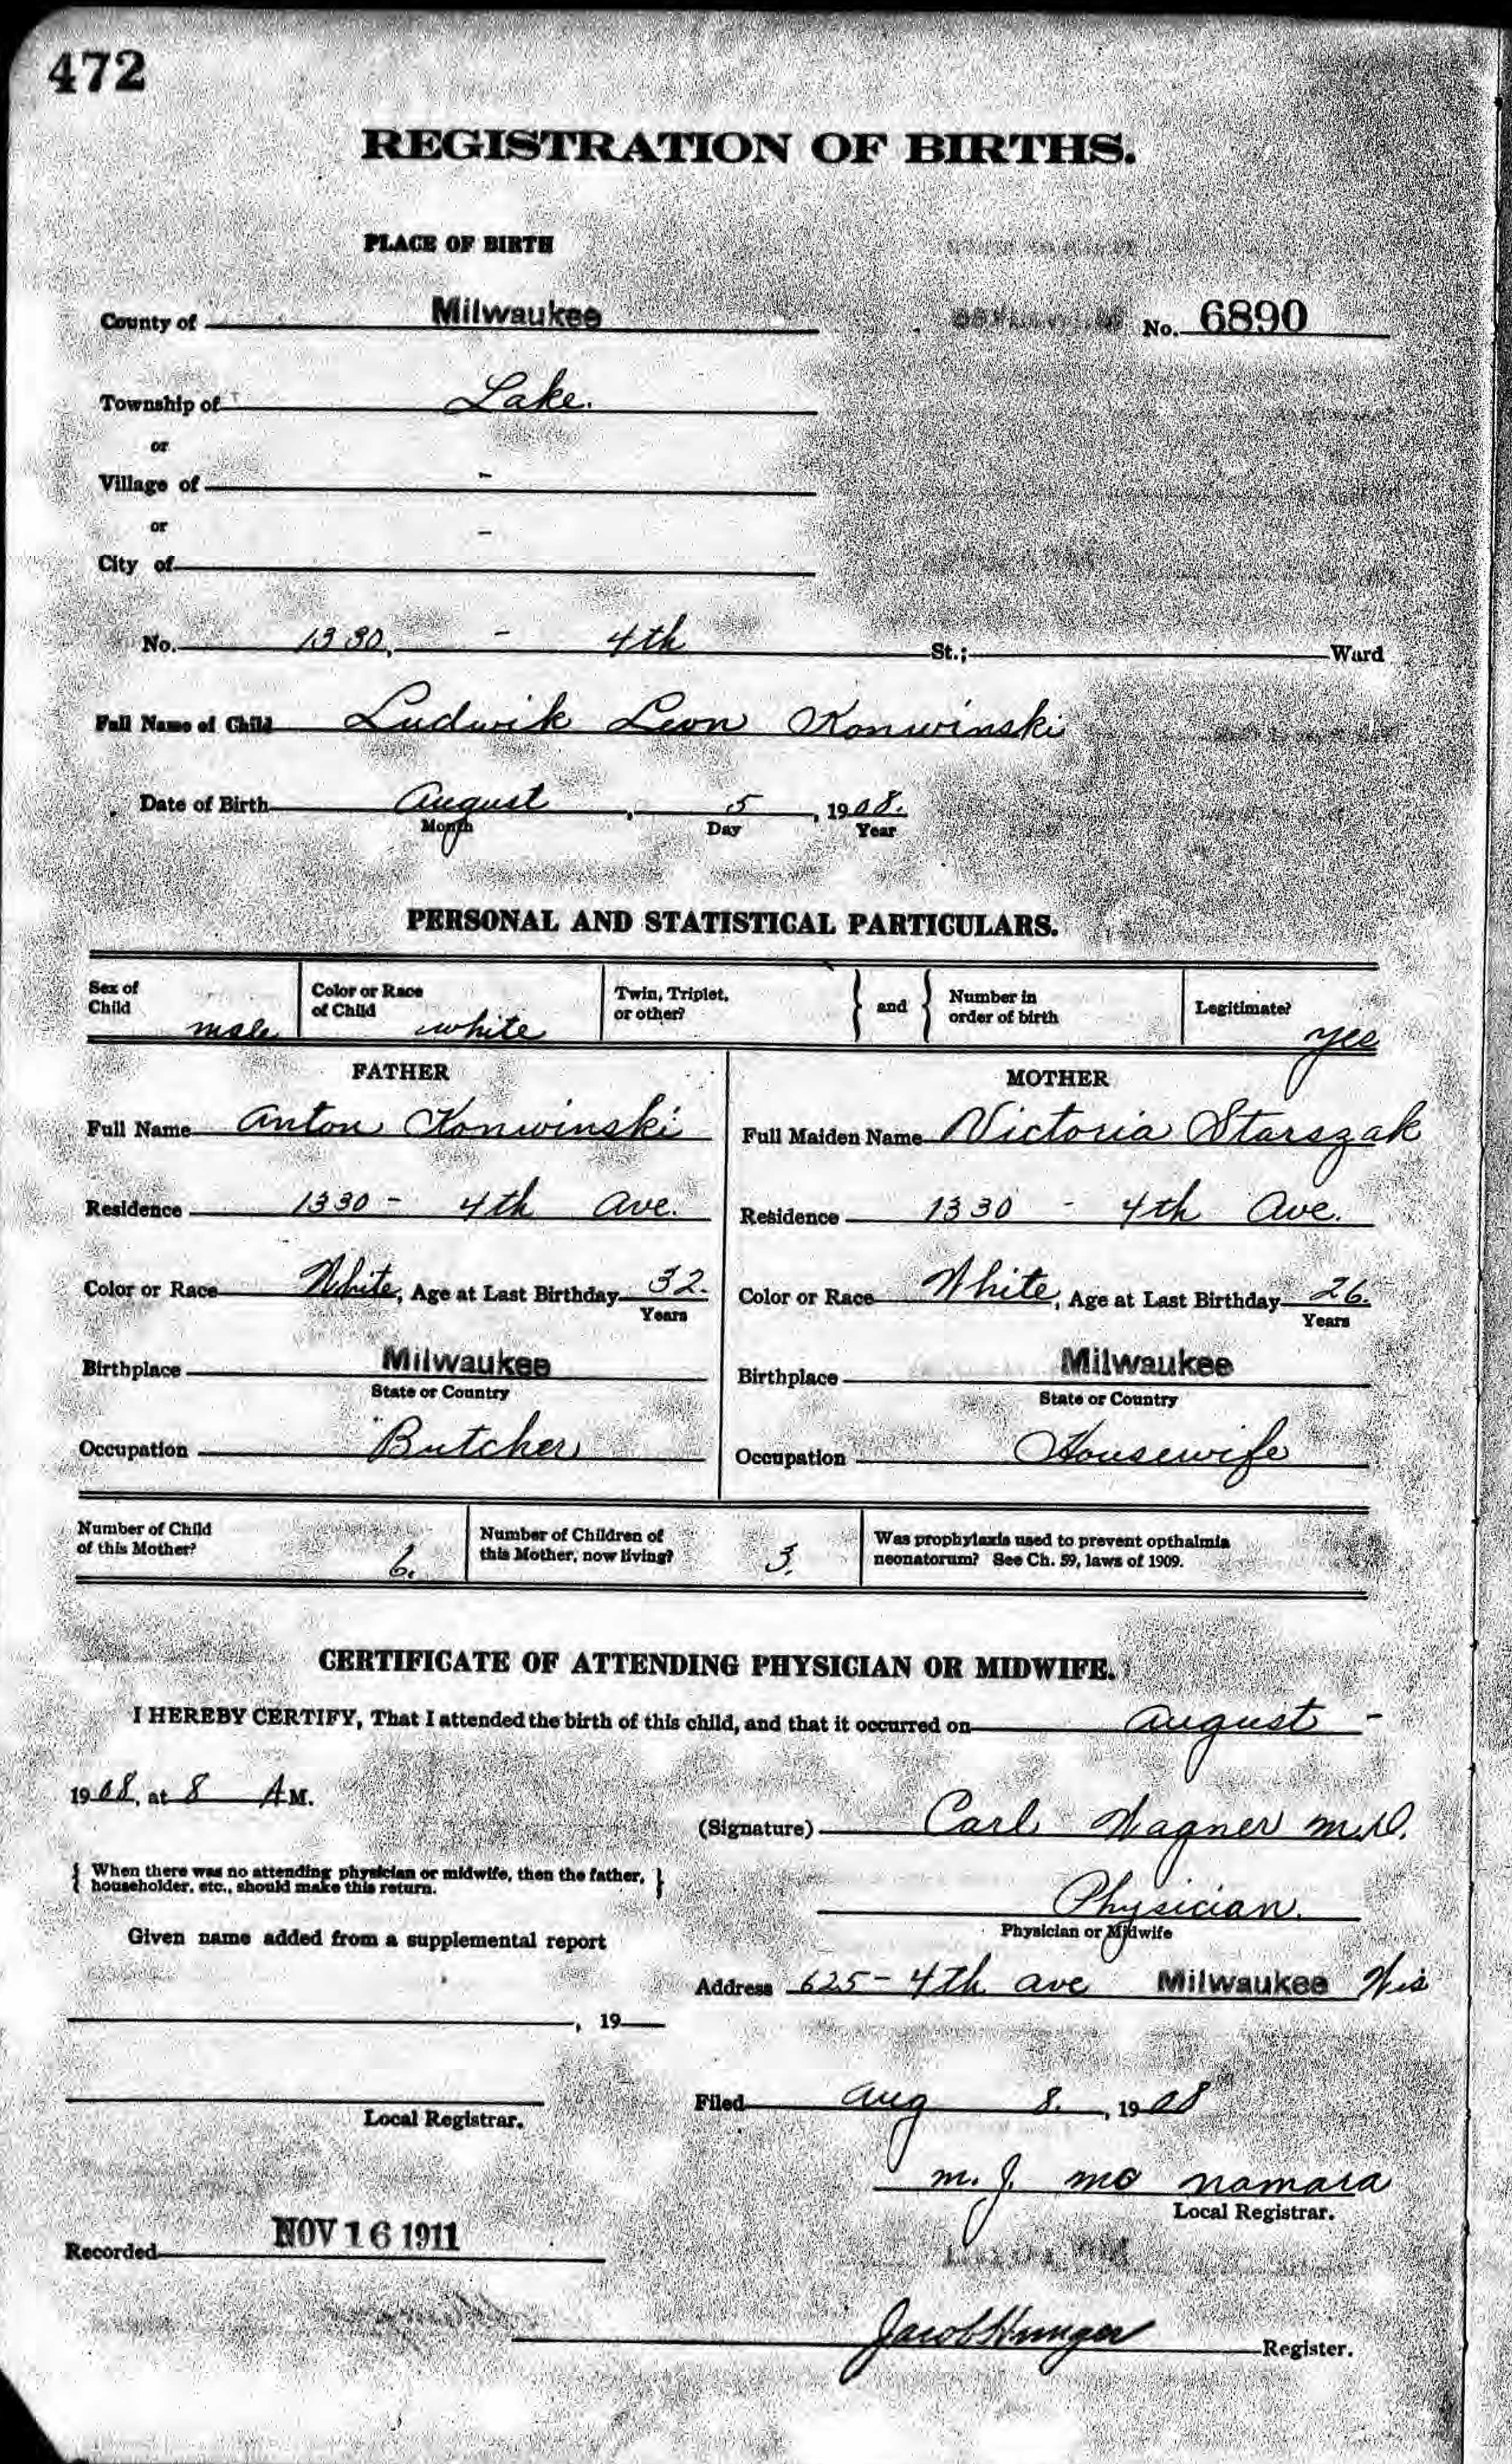 472
REGISTRATION OF BIRTHS.
PLACE OF BIRTH
County of Milwaukee No. 6890
Township of Lake.
or
Village of -
or
City of -
No. 1330, - 4th St.; Ward
Full Name of Child Ludwik Leon Konwinski
Date of Birth August, 5, 1908.
Month Day Year
PERSONAL AND STATISTICAL PARTICULARS.
Sex of Child male
Color or Race of Child white
Twin, Triplet, or other? } and { Number in order of birth
Legitimate? yes
FATHER
Full Name Anton Konwinski
Residence 1330 - 4th Ave.
Color or Race White, Age at Last Birthday 32.
Years
Birthplace Milwaukee
State or Country
Occupation Butcher
MOTHER
Full Maiden Name Victoria Starszak
Residence 1330 - 4th Ave.
Color or Race White, Age at Last Birthday 26.
Years
Birthplace Milwaukee
State or Country
Occupation Housewife
Number of Child of this Mother? 6.
Number of Children of this Mother, now living? 3.
Was prophylaxis used to prevent opthalmia
neonatorum? See Ch. 59, laws of 1909.
CERTIFICATE OF ATTENDING PHYSICIAN OR MIDWIFE.
I HEREBY CERTIFY, That I attended the birth of this child, and that it occurred on August -
1908, at 8 A M.
(Signature) Carl Wagner M.D.
{ When there was no attending physician or midwife, then the father, householder, etc., should make this return. }
Physician.
Physician or Midwife
Given name added from a supplemental report
Address 625 - 4th ave Milwaukee Wis
, 19
Local Registrar.
Filed Aug 8., 1908
M. J. Mc Namara
Local Registrar.
Recorded NOV 16 1911
Jacob Hunger Register.